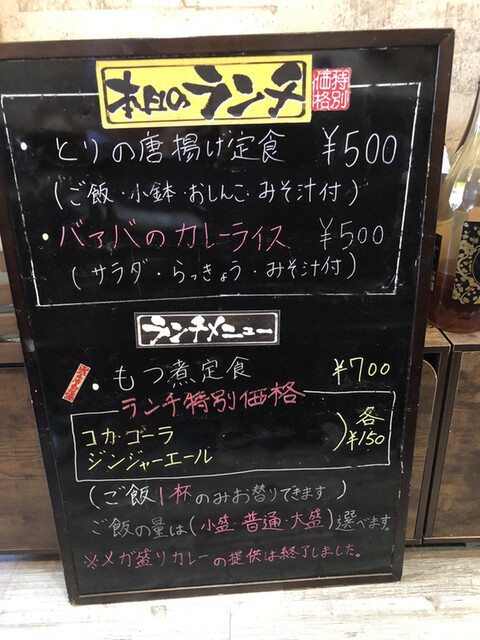 本日のランチ
特別価格
・とりの唐揚げ定食 ¥500
(ご飯・小鉢・おしんこ・みそ汁付)
・バァバのカレーライス ¥500
(サラダ・らっきょう・みそ汁付)
ランチメニュー
・もつ煮定食 ¥700
ランチ特別価格
コカ・コーラ
ジンジャーエール
)各¥150
(ご飯1杯のみお替りできます)
ご飯の量は(小盛・普通・大盛)選べます。
※メガ盛りカレーの提供は終了しました。